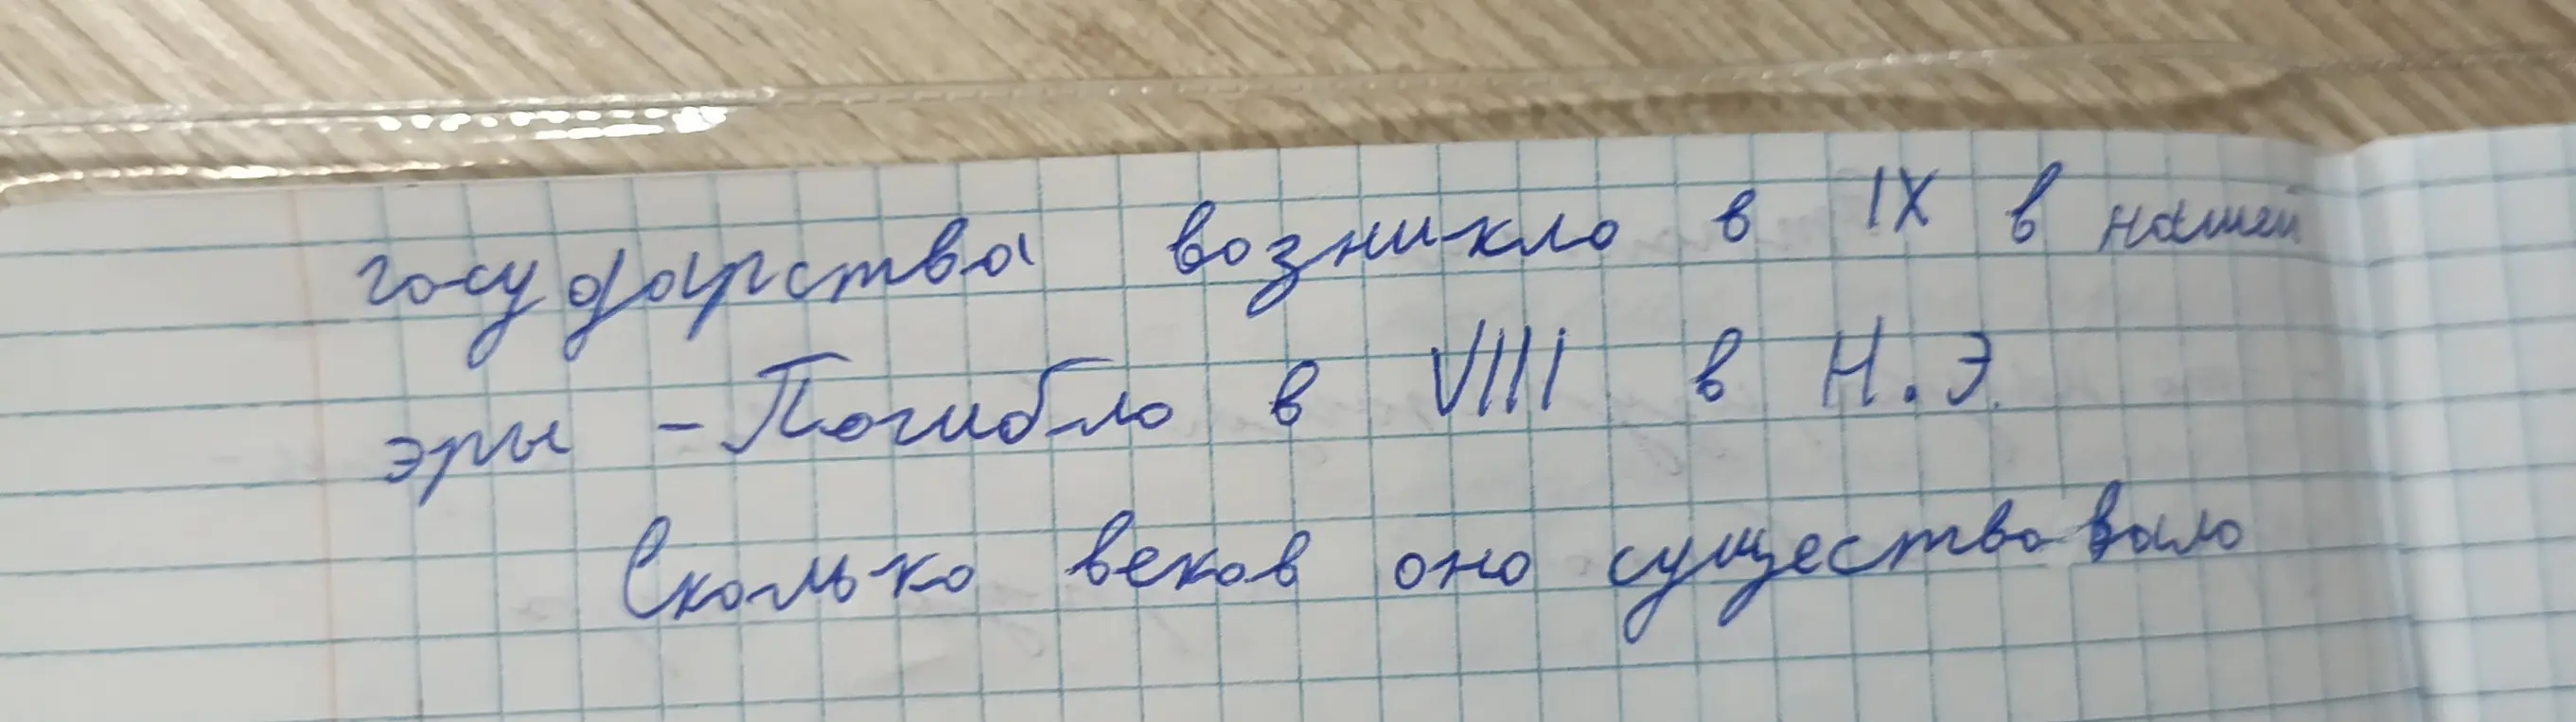 государства возникло в IX в нашей
эры - Погибло в VIII в Н.Э.
Сколько веков оно существовало